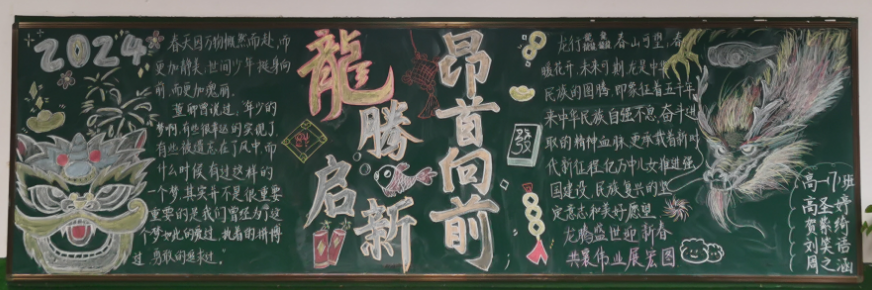 2024
春天因万物慨然而赴,而
更加静美,世间少年挺身向
前,而更加瑰丽。
蓝卿曾说过,年少的
梦啊,有些很幸运的实现了,
有些被遗忘在了风中而
什么时候有过这样的
一个梦,其实并不是很重要
重要的是我们曾经为了这
个梦如此的爱过,执着的拼搏
过,勇敢的追求过。
龍
腾
启
新
昂首向前
發
龙行龘龘,春山可望,春
暖花开,未来可期,龙是中华
民族的图腾,即象征着五千年
来中华民族自强不息,奋斗进
取的精神血脉,更承载着新时
代新征程亿万中儿女推进强
国建设,民族复兴的坚
定意志和美好愿望
龙腾盛世迎新春
共襄伟业展宏图
高一17班
高圣婷
贺紫绮
刘笑语
周之涵